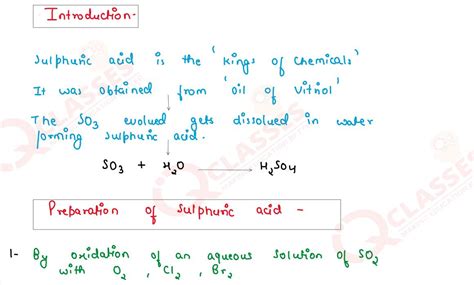 Introduction-
Sulphuric acid is the 'Kings of Chemicals'
It was obtained from 'oil of Vitriol'
The SO3 evolved gets dissolved in water
forming sulphuric acid.
SO3 + H2O → H2SO4
Preparation of Sulphuric acid -
1- By oxidation of an aqueous solution of SO2
with O2 , Cl2 , Br2